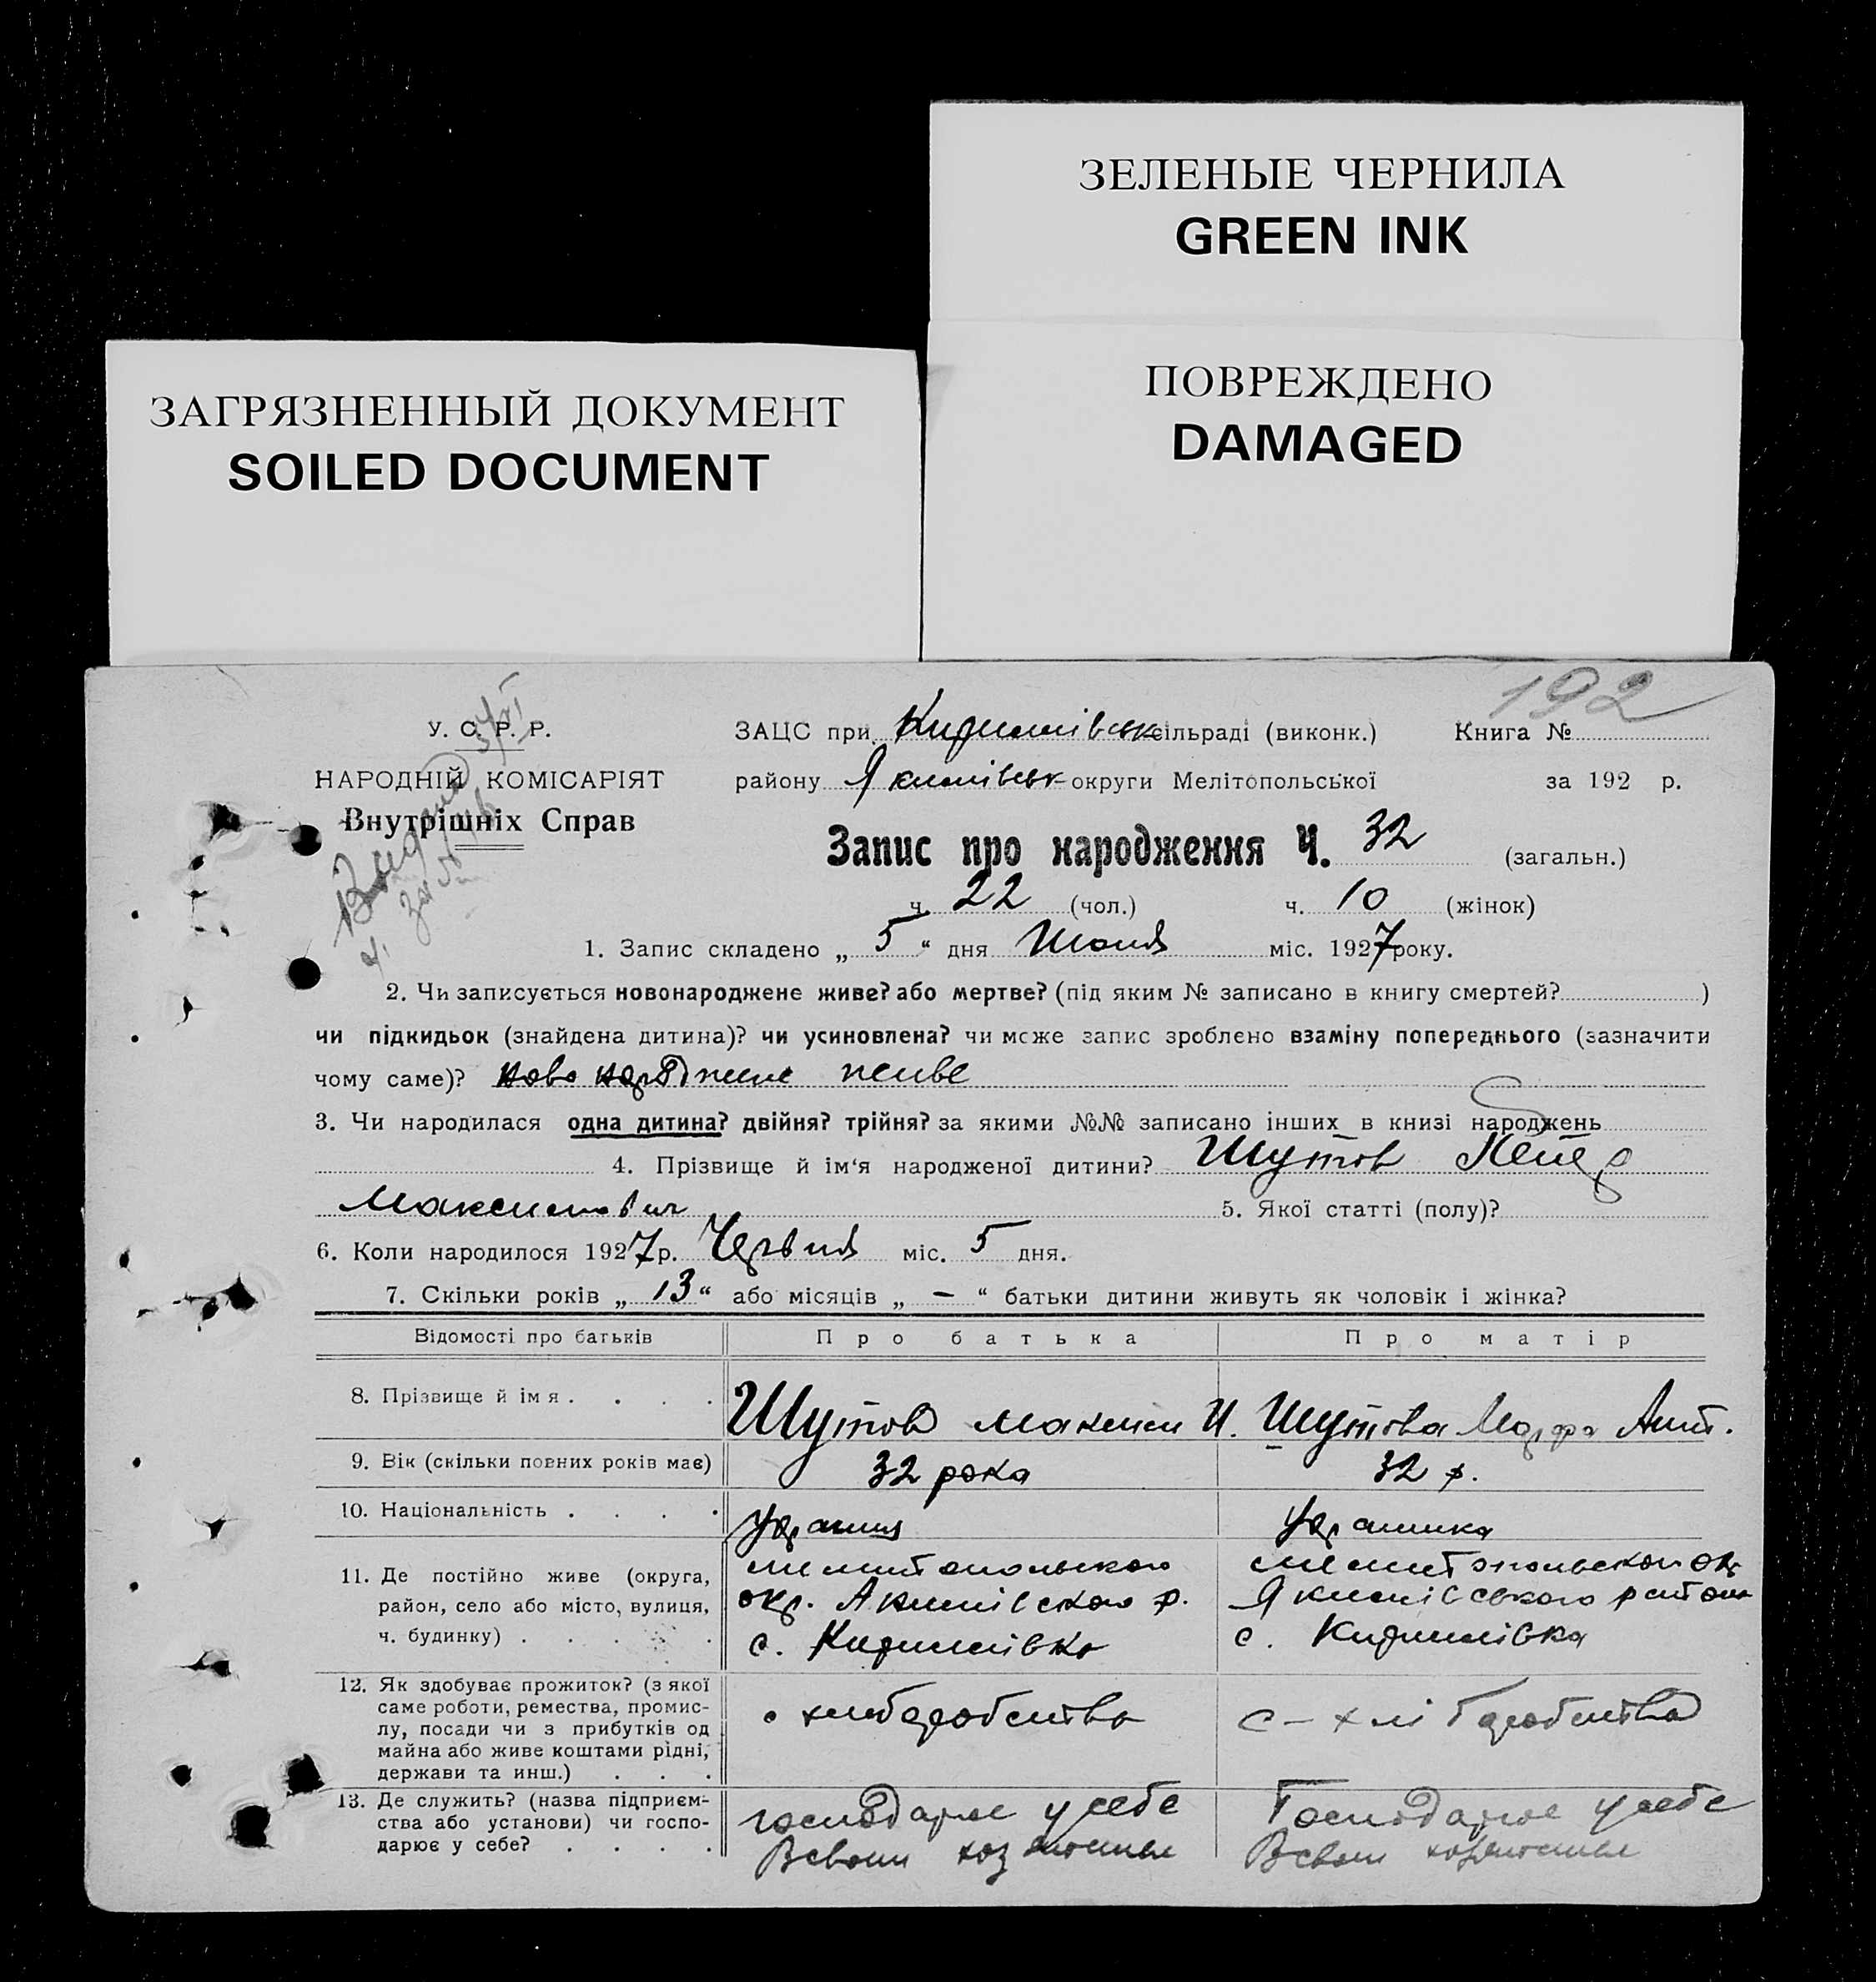 ЗЕЛЕНЫЕ ЧЕРНИЛА
GREEN INK
ПОВРЕЖДЕНО
DAMAGED
ЗАГРЯЗНЕННЫЙ ДОКУМЕНТ
SOILED DOCUMENT
192
У. С. Р. Р.
НАРОДНІЙ КОМІСАРІЯТ
Внутрішніх Справ
ЗАЦС при Кирилівськ сільраді (виконк.) Книга №
району Якимівськ округи Мелітопольської за 192 р.
Запис про народження Ч. 32 (загальн.)
ч. 22 (чол.) ч. 10 (жінок)
1. Запис складено „ 5 “ дня Июня міс. 1927 року.
2. Чи записується новонароджене живе? або мертве? (під яким № записано в книгу смертей? )
чи підкидьок (знайдена дитина)? чи усиновлена? чи може запис зроблено взаміну попереднього (зазначити
чому саме)? ново народжене живе
3. Чи народилася одна дитина? двійня? трійня? за якими №№ записано інших в книзі народжень
4. Прізвище й ім‘я народженої дитини? Шутов
Максимович 5. Якої статті (полу)?
6. Коли народилося 1927 р. Червня міс. 5 дня.
7. Скільки років „ 13 “ або місяців „ — “ батьки дитини живуть як чоловік і жінка?
Відомості про батьків Про батька Про матір
8. Прізвище й імя . . . . Шутов Максим И. Шутова Марфа Ант.
9. Вік (скільки повних років має) 32 рока 32 р.
10. Національність . . . . Украинка
11. Де постійно живе (округа,
район, село або місто, вулиця,
ч. будинку) . . . . .
мелитопольского
окр. Акимівського р.
с. Кирилівка
мелитопольского окр
Якимівського района
с. Кирилівка
12. Як здобуває прожиток? (з якої
саме роботи, ремества, промис-
лу, посади чи з прибутків од
майна або живе коштами рідні,
держави та инш.) . . .
хлиборобства
с-хліборобства
13. Де служить? (назва підприєм-
ства або установи) чи госпо-
дарює у себе? . . . .
господарює у себе
Всвоим
Господарює у себе
Всвоим